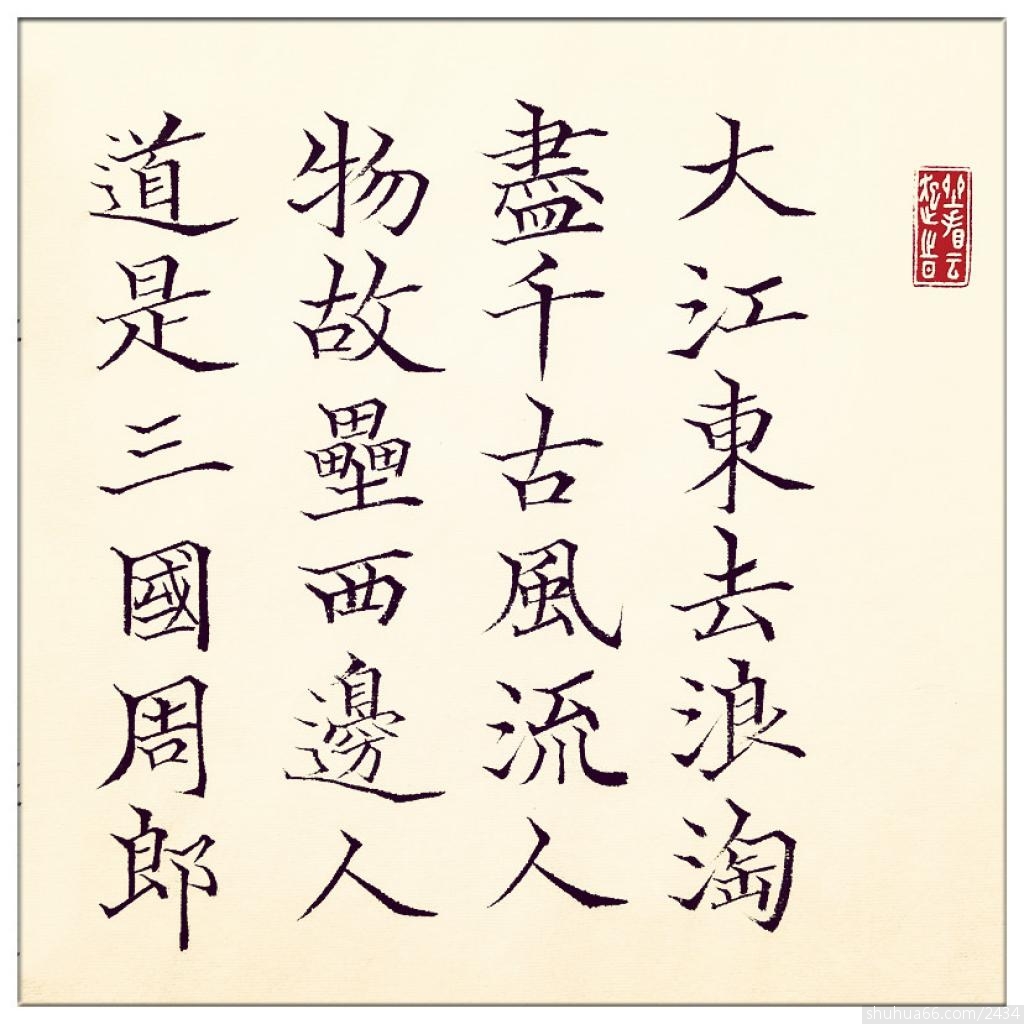 大江東去浪淘
盡千古風流人
物故壘西邊人
道是三國周郎
shuhua66.com/2434